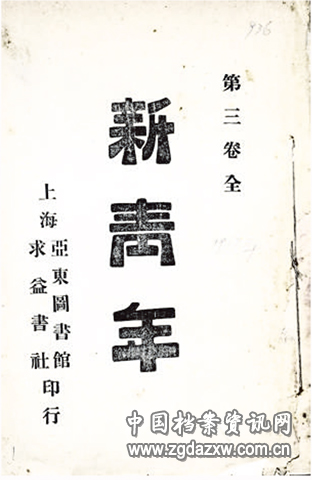 936
第三卷全
新青年
上海亞東圖書館
求益書社印行
中国档案资讯网
www.zgdazxw.com.cn